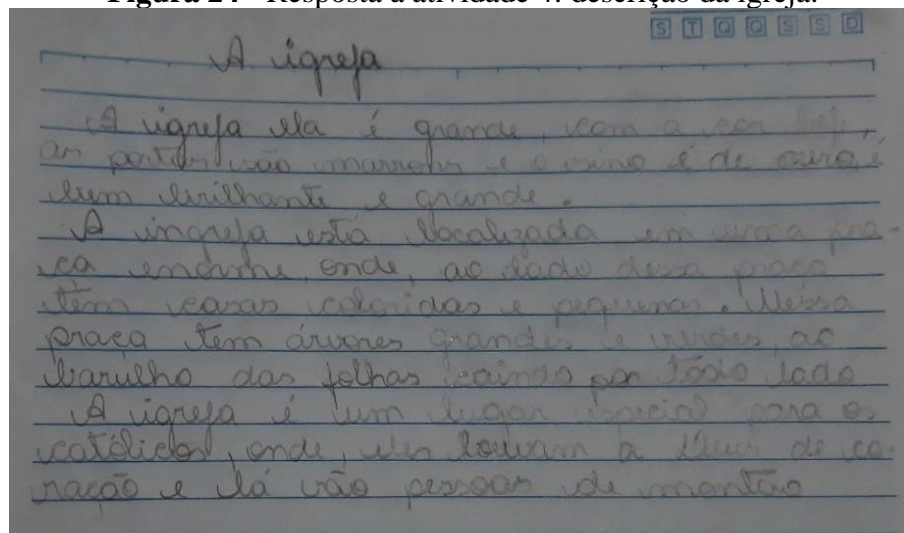 Figura 24 - Resposta à atividade 4: descrição da igreja.
S T Q Q S S D
A igreja
A igreja ela é grande, com a cor beje,
as portas são marrons e o sino é de ouro, é
um brilhante e grande.
A ingreja está localizada em uma pra-
ça enorme onde, ao lado dessa praça
têm casas coloridas e pequenas. Nessa
praça tem árvores grandes e verdes, ao
barulho das folhas caindo por todo lado
A igreja é um lugar especial para os
católicos, onde, eles louvam a Deus de co-
ração e lá vão pessoas de montão